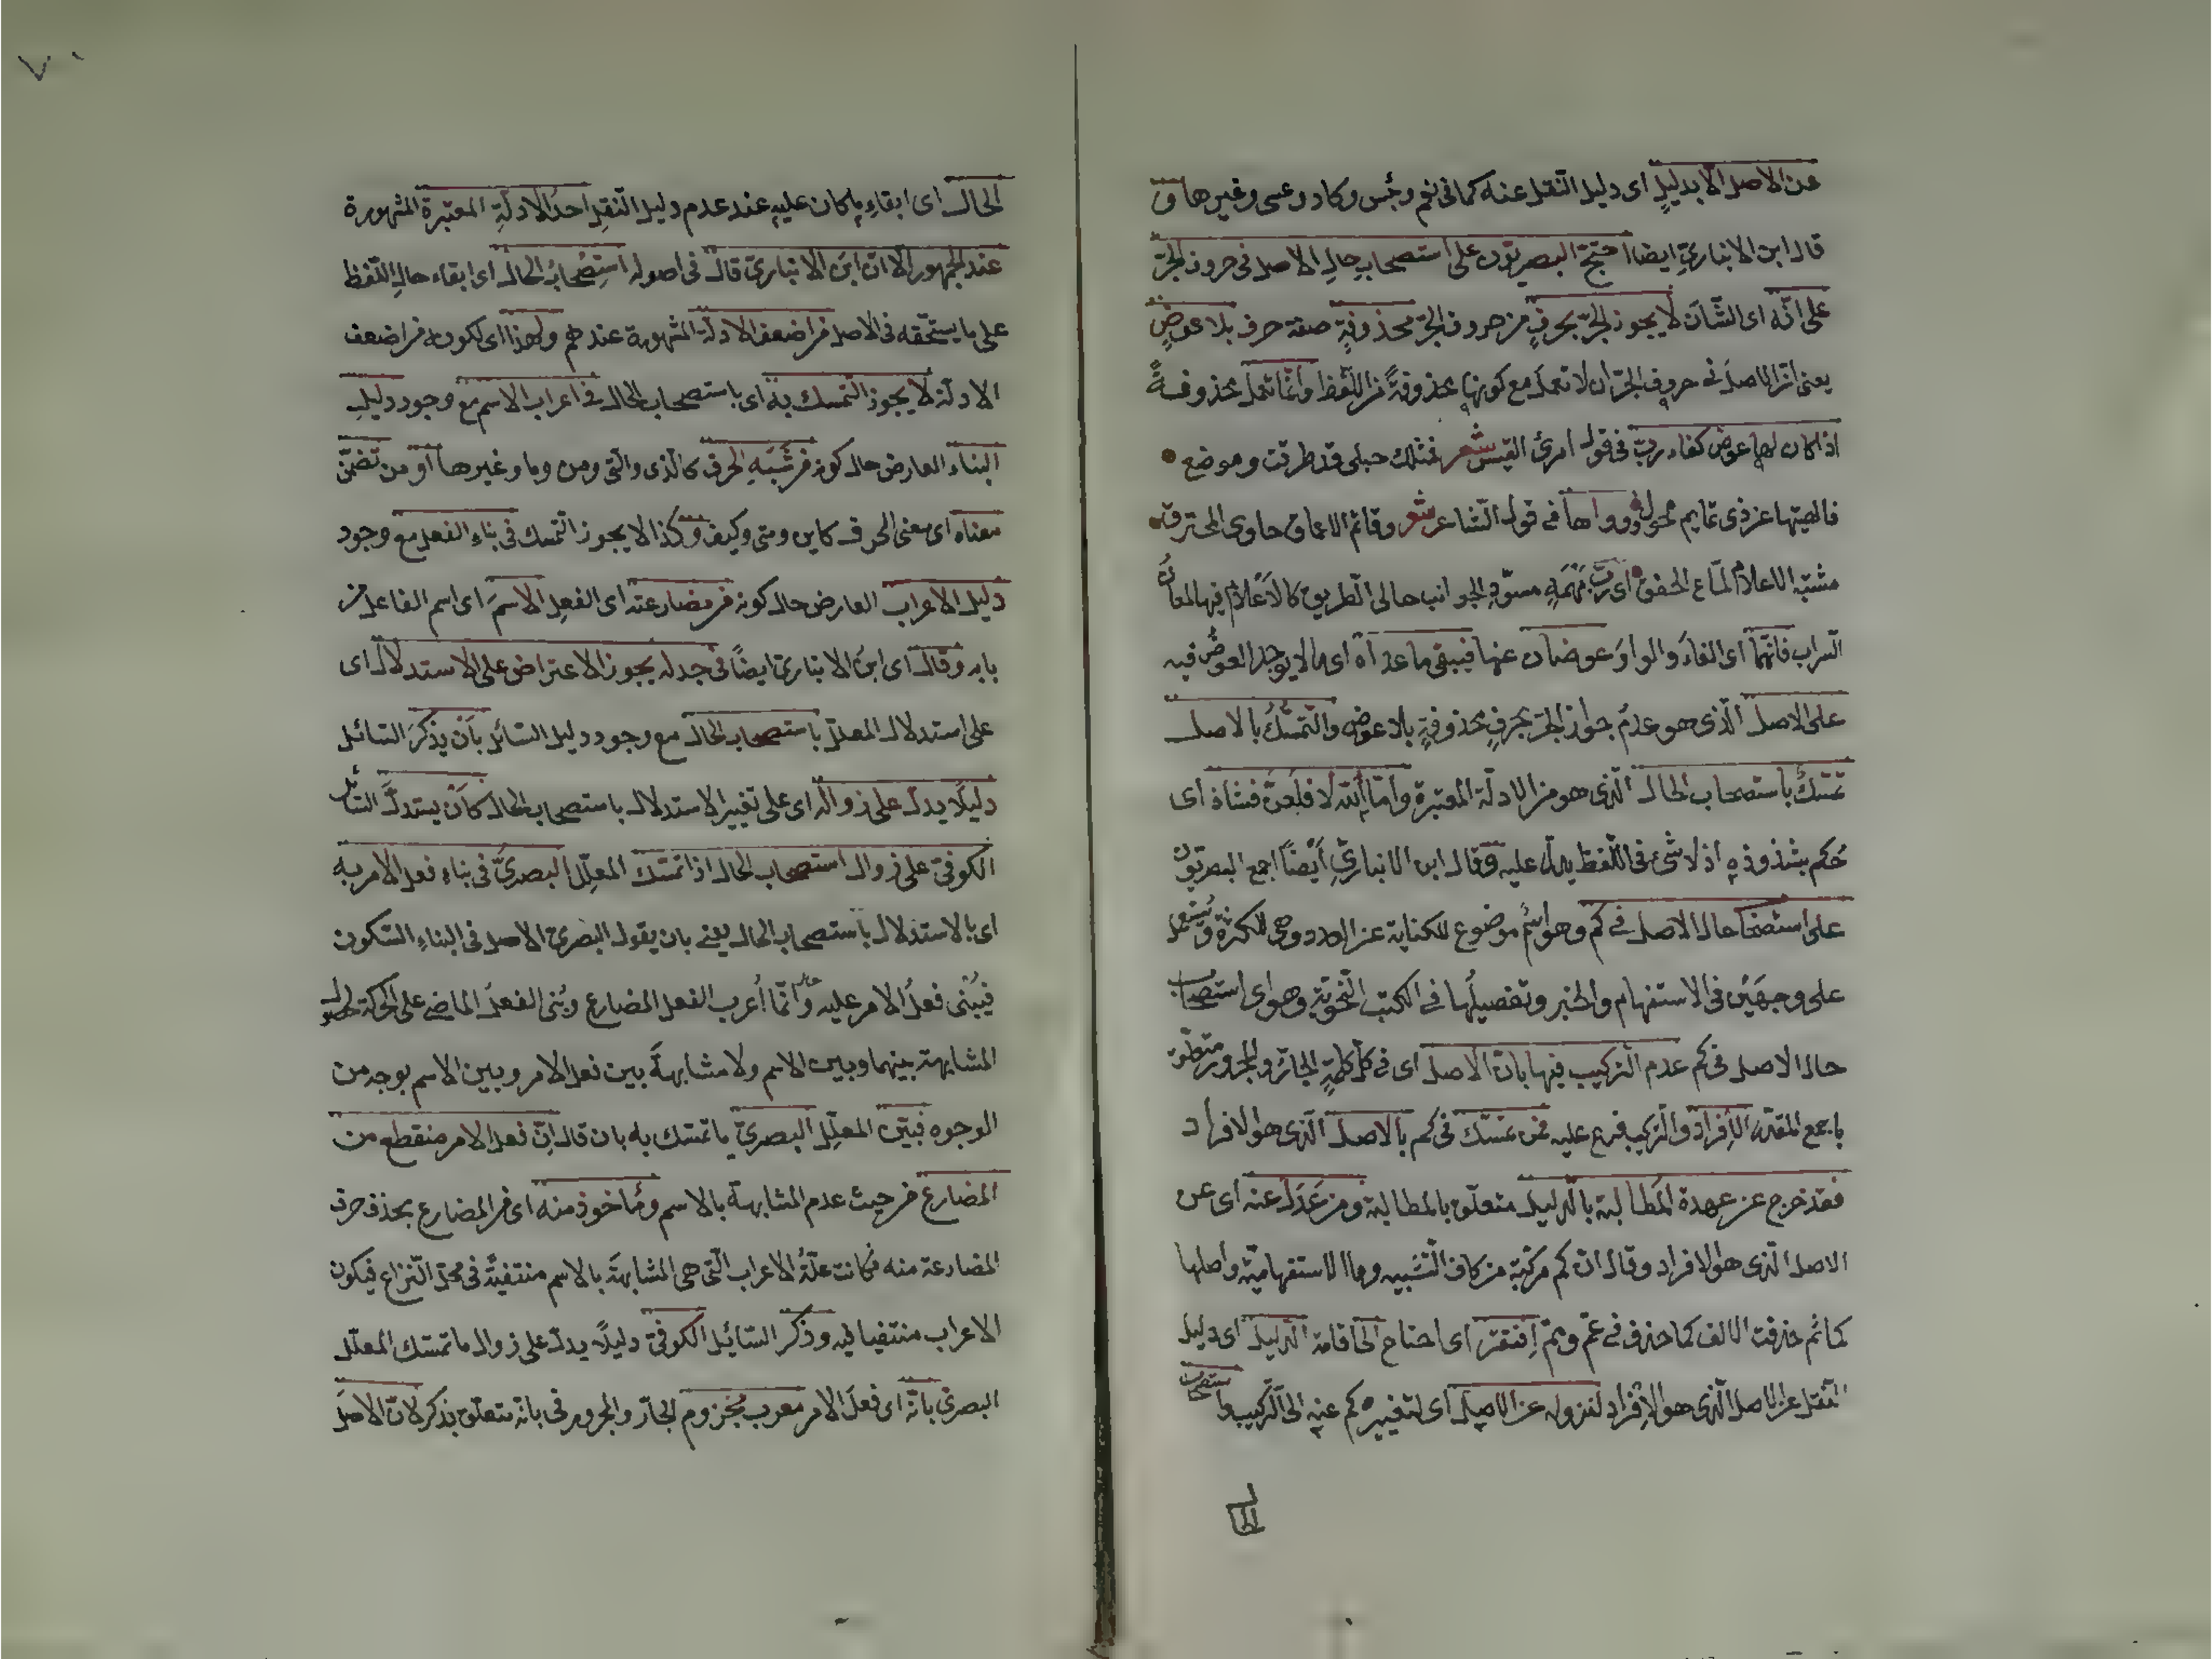 عن الاصل الا بدليلٍ اى دليل النقل عنه كما فى نعم وبئس وكاد وعسى وغيرها و
قال ابن الانبارىّ ايضا احتج البصريّون على استصحاب حال الاصل فى حروف الجرّ
على انّه اى الشّان لا يجوز الجرّ بحرفٍ من حروف الجرّ محذوفةٍ صفة حرف بلا عوضٍ
يعنى انّ الاصل فى حروف الجرّ ان لا تعمل مع كونها محذوفةً من اللّفظ وانّما تعمل محذوفةً
اذا كان لها عوض كفاء ربّ فى قول امرئ القيس شعر فمثلك حبلى قد طرقت وموضع
فالهيتها عن ذى تمايم محول وواوها فى قول الشاعر شعر وقاتم الاعماق حاوى المخترق
مشتبه الاعلام لمّاع الخفق اى ربّ مَهْمَهٍ مسوّدِ الجوانب خالى الطريق كالاَعْلام فيها لمعان
السّراب فانّهما اى الفاءَ والواوَ عوضان عنها فيبقى ما عداه اى ما لا يوجد العوض فيه
على الاصل الّذى هو عدمُ جواز الجرّ بحرفٍ محذوفةٍ بلا عوض والتّمسُّكُ بالاصل
تمسّكٌ باستصحاب الحال الّذى هو من الادلّة المعتبرة وامّا اللهِ لافعلنّ فشاذ اى
حُكم بشذوذه اذ لا شئ فى اللّفظ يدلّ عليه وقال ابن الانبارىِّ اَيْضًا اجمع البصريّون
على استصحاب حال الاصل فى كم وهو اسْمٌ موضوع للكناية عن العدد وهى للكثرة وتُستعمل
على وجهَيْن فى الاستفهام والخبر وتفصيلُها فى الكتب النّحويّة وهو اى استصحاب
حال الاصل فى كم عدم التّركيب فيها بانّ الاصل اى فى كلّ كلمةٍ الجارّ والمجرور متعلّق
باجمع المقدّر الاِفراد والتّركيب فرع عليه فمن تمسّك فى كم بالاصل الّذى هو الافراد
فقد خرج عن عهدة المُطالبة بالدّليل متعلّق بالمطالبة ومن عَدَلَ عنه اى عن
الاصل الّذى هو الافراد وقال انّ كم مركّبة من كاف التّشبيه وما الاستفهاميّة واصلها
كما ثم حذفت الالف كما حذف فى عمّ وبمَ اِفتقرَ اى احتاج الى اقامة الدّليل اى دليل
النّقل عن الاصل الّذى هو الاِفراد لنزوله عن الاصل اى لتغييره كم عنه الى التّركيب واستصحاب
الحال
الحال اى ابقاءِ ما كان عليه عند عدم دليل النّقلِ احدُ الادلّةِ المعتبرة المشهورة
عند الجمهور الّا انّ ابن الانبارىّ قال فى اصوله استِصْحابُ الحال اى ابقاء حالِ اللّفظ
على ما يستحّقه فى الاصل من اضعف الادلّة المشهورة عندهم ولهذا اى لكونه من اضعف
الادلّة لا يجوز التّمسك به اى باستصحاب الحال فى اعراب الاسم مع وجود دليلِ
البناء العارض حال كونه من شَبَهِ الحرف كالّذى والّتى ومن وما وغيرها او من تضمّن
معناه اى معنى الحرف كاين ومتى وكيف وكذا لا يجوز التّمسك فى بناءِ الفعل مع وجود
دليل الاعراب العارض حال كونه من مضارعته اى الفعلِ الاسمَ اى اسم الفاعل من
بابه وقال اى ابن الانبارى ايضًا فى جدله يجوز الاعتراض على الاستدلال اى
على استدلال المعلّل باستصحاب الحال مع وجود دليل السّائل بأن يذكرَ السّائل
دليلًا يدلّ على زواله اى على تغيير الاستدلال باستصحاب الحال كاَنْ يستدلَّ السّائل
الكوفىّ على زوال استصحاب الحال اذا تمسّك المعلّل البصرىّ فى بناءِ فعل الامر به
اى بالاستدلال باستصحاب الحال يعنى بان يقول البصرىّ الاصل فى البناءِ السّكون
فيُبْنى فعلُ الامر عليه وانّما اُعرب الفعل المضارع وبُنى الفعلُ الماضى على الحركة لحصول
المشابهة بينهما وبين الاسم ولا مشابهةَ بين فعل الامر وبين الاسم بوجه من
الوجوه فبيّن المعلّل البصرىّ ما تمسّك به بان قال انّ فعل الامر منقطع من
المضارع من حيث عدم المشابهة بالاسم ومأخوذ منه اى من المضارع بحذف حرف
المضارعة منه فكانت علّةُ الاعراب الّتى هى المشابهةُ بالاسم منتفيةً فى محلّ النّزاع فيكون
الاعراب منتفيا فيه وذكر السّائل الكوفىّ دليلًا يدلّ على زوال ما تمسّك المعلّل
البصرىّ بانّه اى فعلَ الامر معرب مجزوم الجارّ والمجرور فى بانّه متعلّق بذكر لانّ الاصلَ